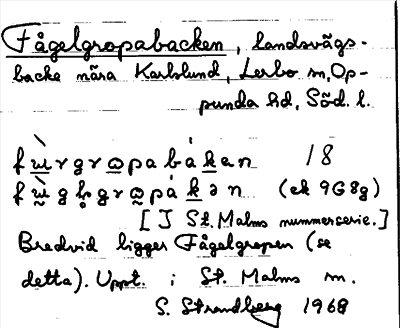 Fågelgropabacken, landsvägs-
backe nära Karlslund, Lerbo sn, Op-
punda hd, Söd. l.
18
(ek 9G8g)
[ ] St. Malms nummerserie.]
Bredvid ligger Fågelgropen (se
detta). Uppt. i St. Malms sn.
S. Strandberg 1968